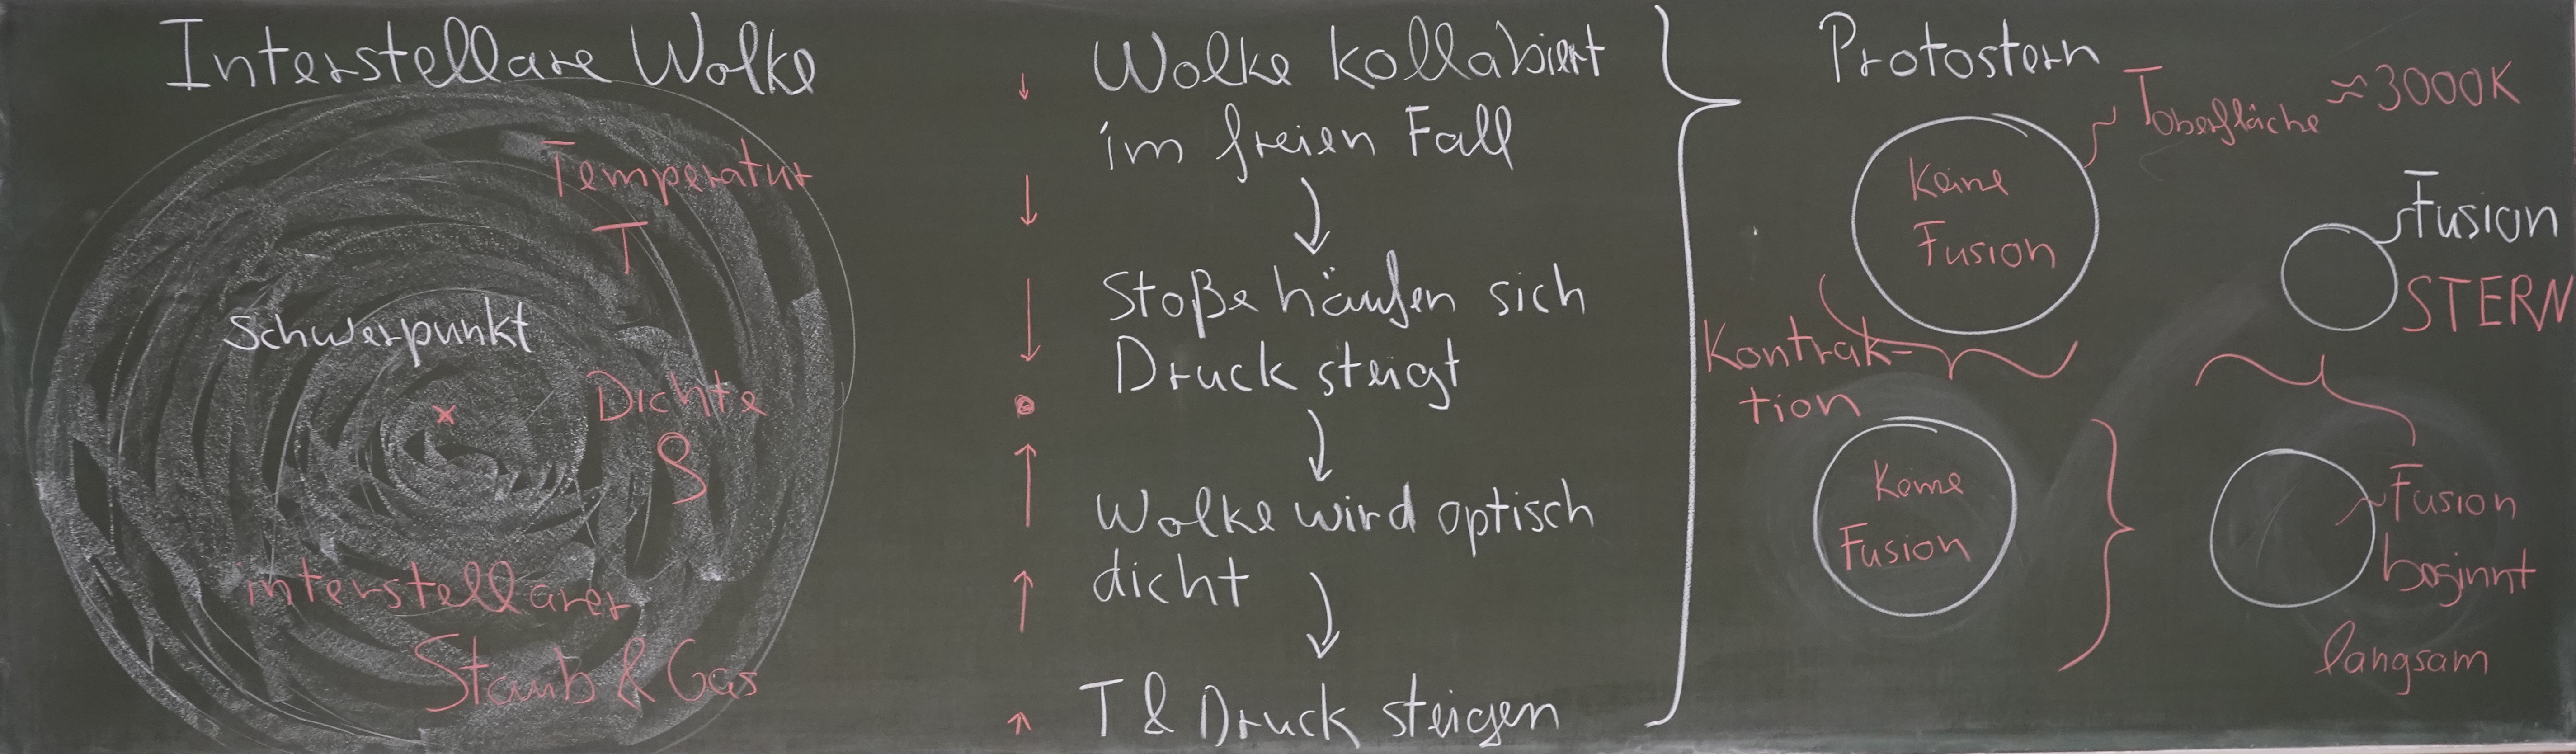 Interstellare Wolke
Temperatur
T
Schwerpunkt
Dichte
ρ
interstellarer
Staub & Gas
Wolke kollabiert
im freien Fall
Stoße häufen sich
Druck steigt
Wolke wird optisch
dicht
T & Druck steigen
Protostern
T Oberfläche ≈ 3000K
Keine
Fusion
Kontrak-
tion
Keine
Fusion
Fusion
beginnt
langsam
Fusion
STERN